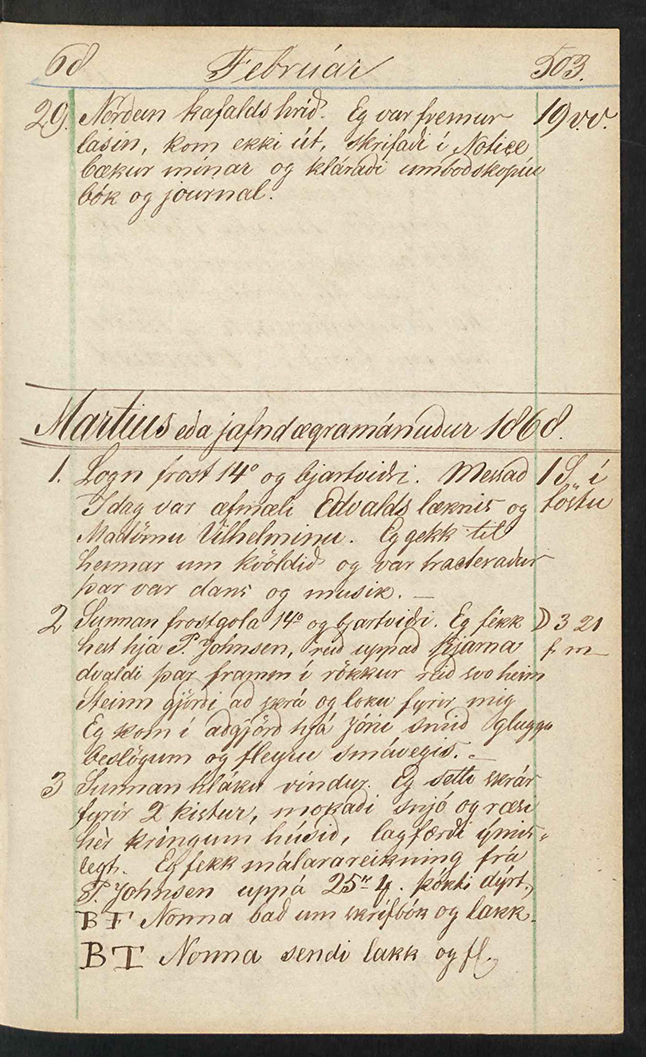 68 Februar 503.
29. Norðan kafalds hríð. Eg var fremur 19 v.v.
lasin, kom ekki út, skrifaði í Notice
bækur mínar og kláraði umboðskopíu
bók og journal.
Martius eða jafndægramánuður 1868.
1. Logn frost 14° og bjartviðri. Messað 1 S. í
Idag var afmæli Edvalds læknis og föstu
Madömu Vilhelminu. Eg gekk til
hennar um kvöldið og var tracteraður
þar var dans og musik. —
2 Sunnan frostgola 14° og bjartviðri. Eg fékk 3 21
hest hjá P. Johnsen, reið uppað Bjarna f m
dvaldi þar framm í rökkur reið svo heim
Steinn gjörði að skrá og loku fyrir mig
Eg kom í aðgjörð hjá smið glugga
beslögum og fleyru smávegis. —
3 Sunnan hláku vindur. Eg setti skrár
fyrir 2 kistur, mokaði snjó og ræsi
hér kringum húsið, lagfærði ýmis-
legt. Eg fekk málarareikning frá
P. Johnsen uppá 25 4. þókti dýrt.
BF Nonna bað um skrifbók og lakk.
BT Nonna sendi lakk og fl.